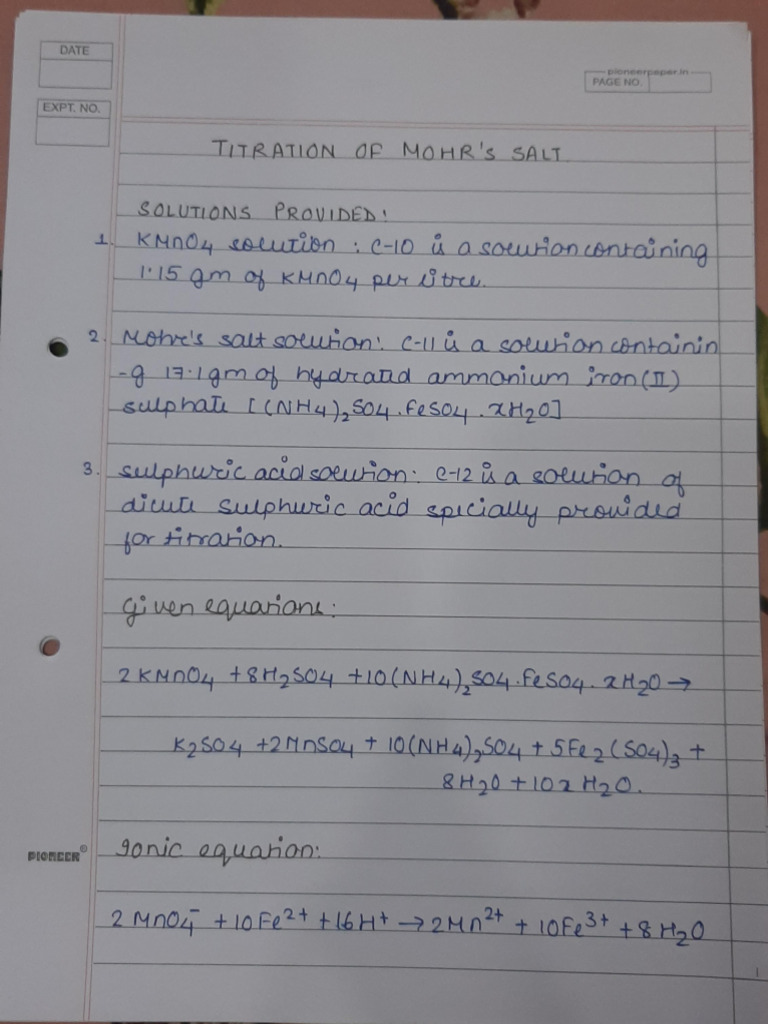 DATE
pioneerpaper.in
PAGE NO.
EXPT. NO.
TITRATION OF MOHR'S SALT.
SOLUTIONS PROVIDED:
1. KMnO4 solution : C-10 is a solution containing
1.15 gm of KMnO4 per litre.
2. Mohr's salt solution: C-11 is a solution containin
-g 17.1gm of hydrated ammonium iron(II)
sulphate [(NH4)2SO4.FeSO4.xH2O]
3. sulphuric acid solution: C-12 is a solution of
dilute sulphuric acid specially provided
for titration.
Given equations:
2KMnO4 + 8H2SO4 + 10(NH4)2SO4.FeSO4.xH2O →
K2SO4 + 2MnSO4 + 10(NH4)2SO4 + 5Fe2(SO4)3 +
8H2O + 10xH2O.
PIONEER®
Ionic equation:
2MnO4⁻ + 10Fe²⁺ + 16H⁺ → 2Mn²⁺ + 10Fe³⁺ + 8H2O